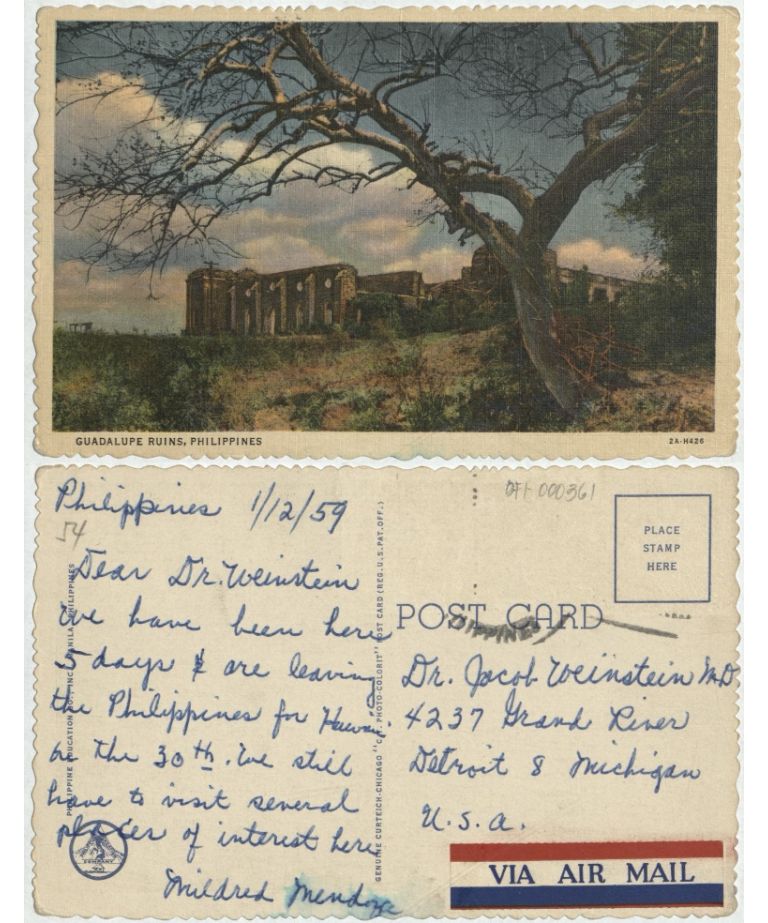 GUADALUPE RUINS, PHILIPPINES
2A-H426
Philippines 1/12/59
54
Dear Dr. Weinstein
We have been here
5 days & are leaving
the Philippines for Hawaii
on the 30th. We still
have to visit several
places of interest here
Mildred Mendoza
PHILIPPINE EDUCATION CO., INC., MANILA, PHILIPPINES
GENUINE CURTEICH-CHICAGO "C.T. PHOTO-COLORIT" POST CARD (REG. U.S. PAT. OFF.)
PLACE
STAMP
HERE
POST CARD
PHILIPPINES
Dr. Jacob Weinstein M.D.
4237 Grand River
Detroit 8 Michigan
U.S.A.
VIA AIR MAIL